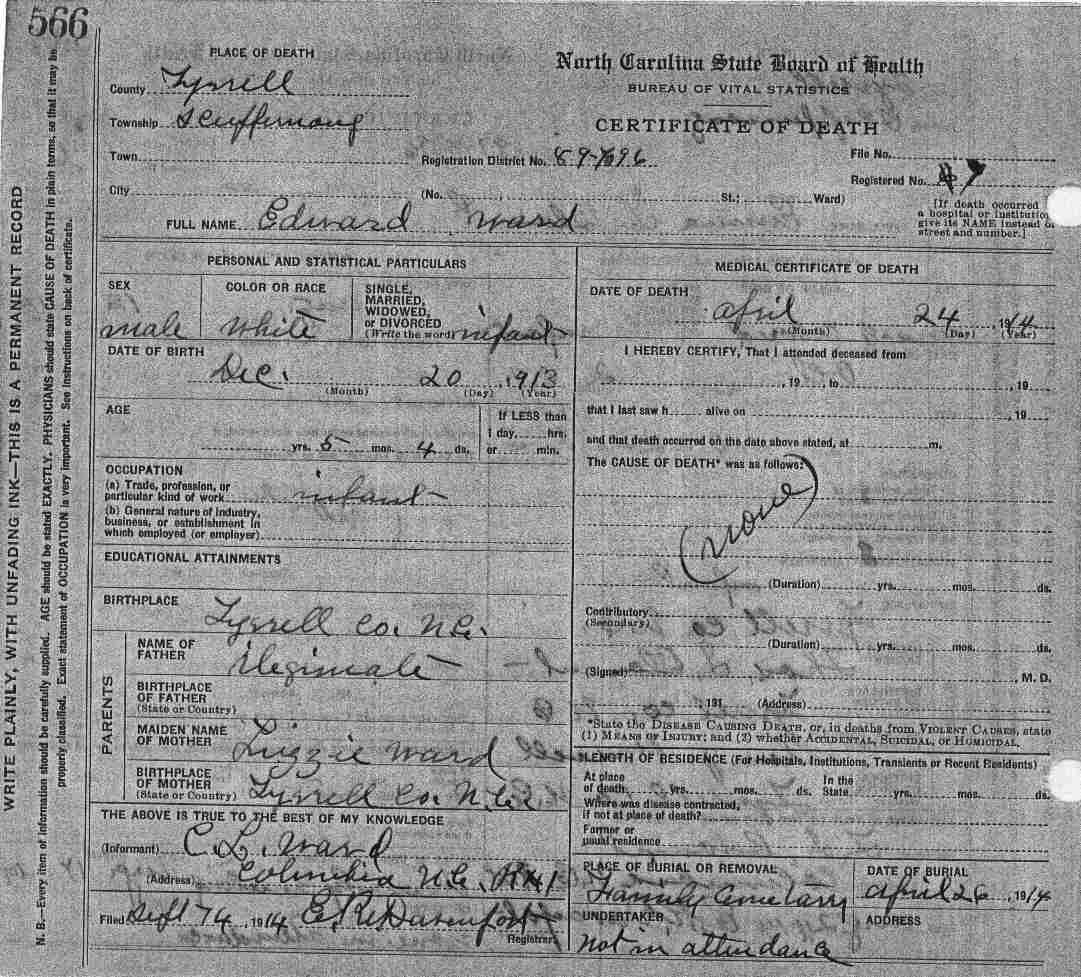 566
PLACE OF DEATH
County Tyrrell
Township Scuppernong
Town
City
North Carolina State Board of Health
BUREAU OF VITAL STATISTICS
CERTIFICATE OF DEATH
Registration District No. 89-
File No.
Registered No. 7
(No. St.; Ward)
[If death occurred
a hospital or institution
give its NAME instead of
street and number.]
FULL NAME Edward Ward
PERSONAL AND STATISTICAL PARTICULARS
SEX
male
COLOR OR RACE
white
SINGLE,
MARRIED,
WIDOWED,
or DIVORCED
(Write the word) infant
DATE OF BIRTH
Dec. 20, 1913
(Month) (Day) (Year)
AGE
yrs. 5 mos. 4 ds.
If LESS than
1 day, hrs.
or min.
OCCUPATION
(a) Trade, profession, or
particular kind of work infant
(b) General nature of industry,
business, or establishment in
which employed (or employer)
EDUCATIONAL ATTAINMENTS
BIRTHPLACE
Tyrrell Co. N.C.
PARENTS
NAME OF
FATHER
ilegimate
BIRTHPLACE
OF FATHER
(State or Country)
MAIDEN NAME
OF MOTHER
Luzzie Ward
BIRTHPLACE
OF MOTHER
(State or Country) Tyrrell Co. N.C.
THE ABOVE IS TRUE TO THE BEST OF MY KNOWLEDGE
(Informant) C. L. Ward
(Address) Columbia N.C. R#1
Filed Sept 74, 1914 E. R. Davenport
Registrar
MEDICAL CERTIFICATE OF DEATH
DATE OF DEATH
april 24, 1914
(Month) (Day) (Year)
I HEREBY CERTIFY, That I attended deceased from
, 19 , to , 19
that I last saw h alive on , 19
and that death occurred on the date above stated, at m.
The CAUSE OF DEATH* was as follows:
(none)
(Duration) yrs. mos. ds.
Contributory
(Secondary)
(Duration) yrs. mos. ds.
(Signed) , M. D.
, 191 (Address)
*State the DISEASE CAUSING DEATH, or, in deaths from VIOLENT CAUSES, state
(1) MEANS OF INJURY; and (2) whether ACCIDENTAL, SUICIDAL, or HOMICIDAL.
LENGTH OF RESIDENCE (For Hospitals, Institutions, Transients or Recent Residents)
At place
of death yrs. mos. ds.
In the
State yrs. mos. ds.
Where was disease contracted,
if not at place of death?
Former or
usual residence
PLACE OF BURIAL OR REMOVAL
Family Cemetarry
DATE OF BURIAL
april 26, 1914
UNDERTAKER
not in attendance
ADDRESS
WRITE PLAINLY, WITH UNFADING INK—THIS IS A PERMANENT RECORD
N. B.—Every item of information should be carefully supplied. AGE should be stated EXACTLY. PHYSICIANS should state CAUSE OF DEATH in plain terms, so that it may be
properly classified. Exact statement of OCCUPATION is very important. See instructions on back of certificate.